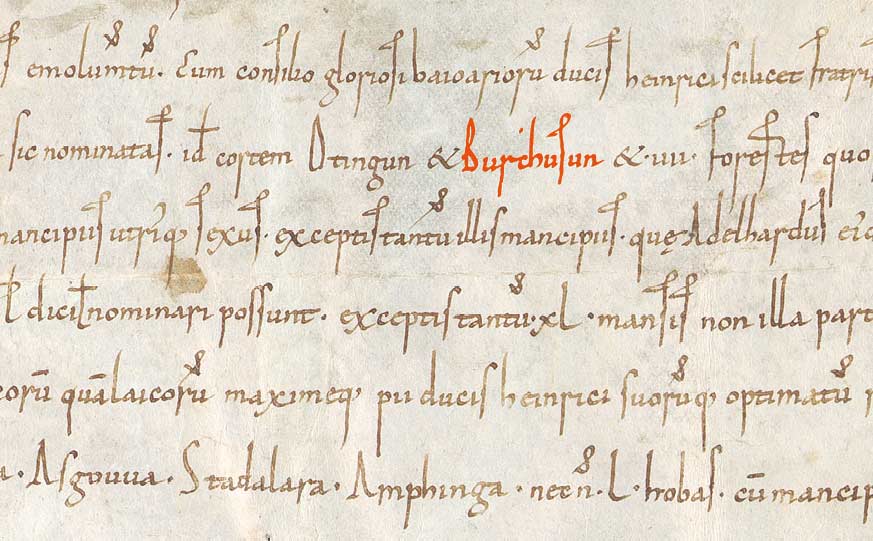 emolumtū. Cum consilio gloriosi baioarioru ducis heinrici scilicet fratri
sic nominatas. id cortem Otingun & Burchusun &. uii. forestes quo
mancipiis utriq; sexus. exceptis tantū illis mancipiis. quę Adelhardus
dici nominari possunt. exceptis tantū. xl. mansis non illa part
corū quā laicorū maximeq; pii ducis heinrici suorūq; optimatū
Asgouua. Stadalara. Amphinga. necn̄. L. hobas. cū mancip